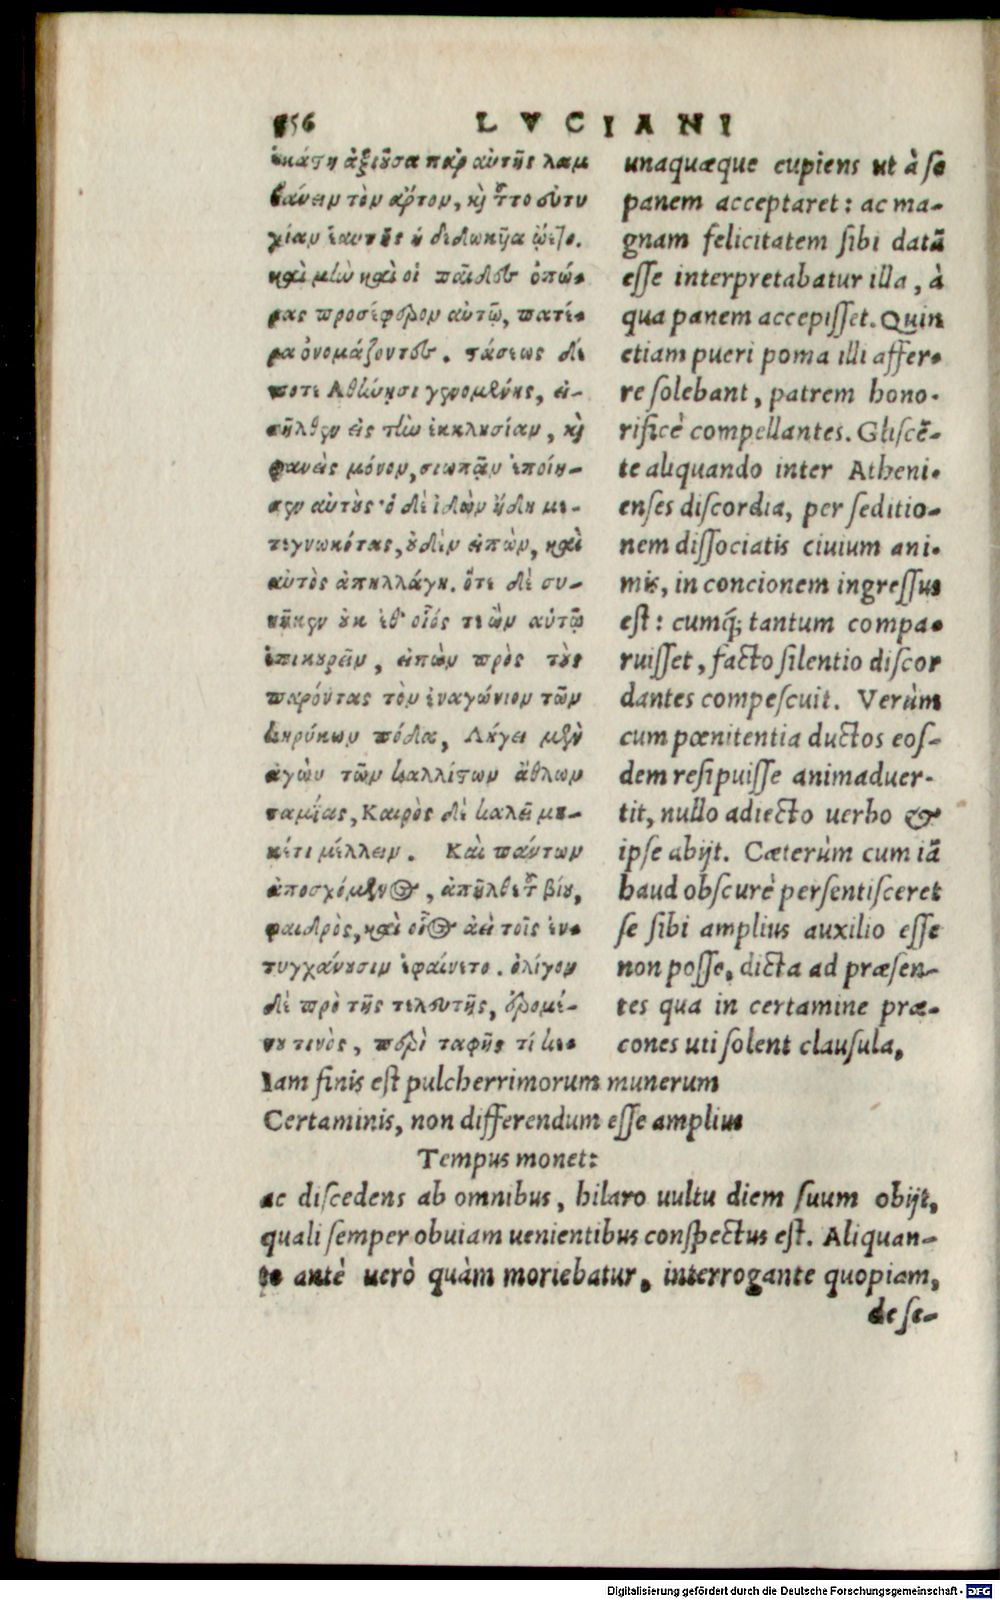 856 LVCIANI
ἑκάστη ἀξιοῦσα παρ' αὐτῆς λαμ
βάνειν τὸν ἄρτον, καὶ τοῦτο εὐτυ
χίαν ἑαυτῆς ἡ δεδωκυῖα ᾤετο.
καὶ μὲν καὶ οἱ παῖδες ὀπώ-
ρας προσέφερον αὐτῷ, πατέ-
ρα ὀνομάζοντες. στάσεως δέ
ποτε Ἀθήνησι γενομένης, εἰ-
σῆλθεν εἰς τὴν ἐκκλησίαν, καὶ
φανεὶς μόνον, σιωπᾷν ἐποίη-
σεν αὐτούς· ὁ δὲ ἰδὼν ἤδη με-
τεγνωκότας, οὐδὲν εἰπὼν, καὶ
αὐτὸς ἀπηλλάγη. ὅτε δὲ συ-
νῆκεν οὐκ ἔθ' οἷός τε ὢν αὑτῷ
ἐπικουρεῖν, εἰπὼν πρὸς τοὺς
παρόντας τὸν ἐναγώνιον τῶν
κηρύκων πόδα, Λήγει μὲν
ἀγὼν τῶν καλλίστων ἄθλων
ταμίας, Καιρὸς δὲ καλεῖ μη-
κέτι μέλλειν. Καὶ πάντων
ἀποσχόμενος, ἀπῆλθε τοῦ βίου,
φαιδρὸς, καὶ οἷος ἀεὶ τοῖς ἐν-
τυγχάνουσιν ἐφαίνετο. ὀλίγον
δὲ πρὸ τῆς τελευτῆς, ἐρομέ-
νου τινὸς, περὶ ταφῆς τί κε-
unaquæque cupiens ut à se
panem acceptaret: ac ma-
gnam felicitatem sibi datã
esse interpretabatur illa, à
qua panem accepisset. Quin
etiam pueri poma illi affer-
re solebant, patrem hono-
rificè compellantes. Gliscẽ-
te aliquando inter Atheni-
enses discordia, per seditio-
nem dissociatis ciuium ani-
mis, in concionem ingressus
est: cumq́; tantum compa-
ruisset, facto silentio discor
dantes compescuit. Verùm
cum pœnitentia ductos eos-
dem resipuisse animaduer-
tit, nullo adiecto uerbo &
ipse abijt. Cæterùm cum iã
haud obscurè persentisceret
se sibi amplius auxilio esse
non posse, dicta ad præsen-
tes qua in certamine præ-
cones uti solent clausula,
Iam finis est pulcherrimorum munerum
Certaminis, non differendum esse amplius
Tempus monet:
ac discedens ab omnibus, hilaro uultu diem suum obijt,
quali semper obuiam uenientibus conspectus est. Aliquan-
to antè uerò quàm moriebatur, interrogante quopiam,
de se-
Digitalisierung gefördert durch die Deutsche Forschungsgemeinschaft - DFG